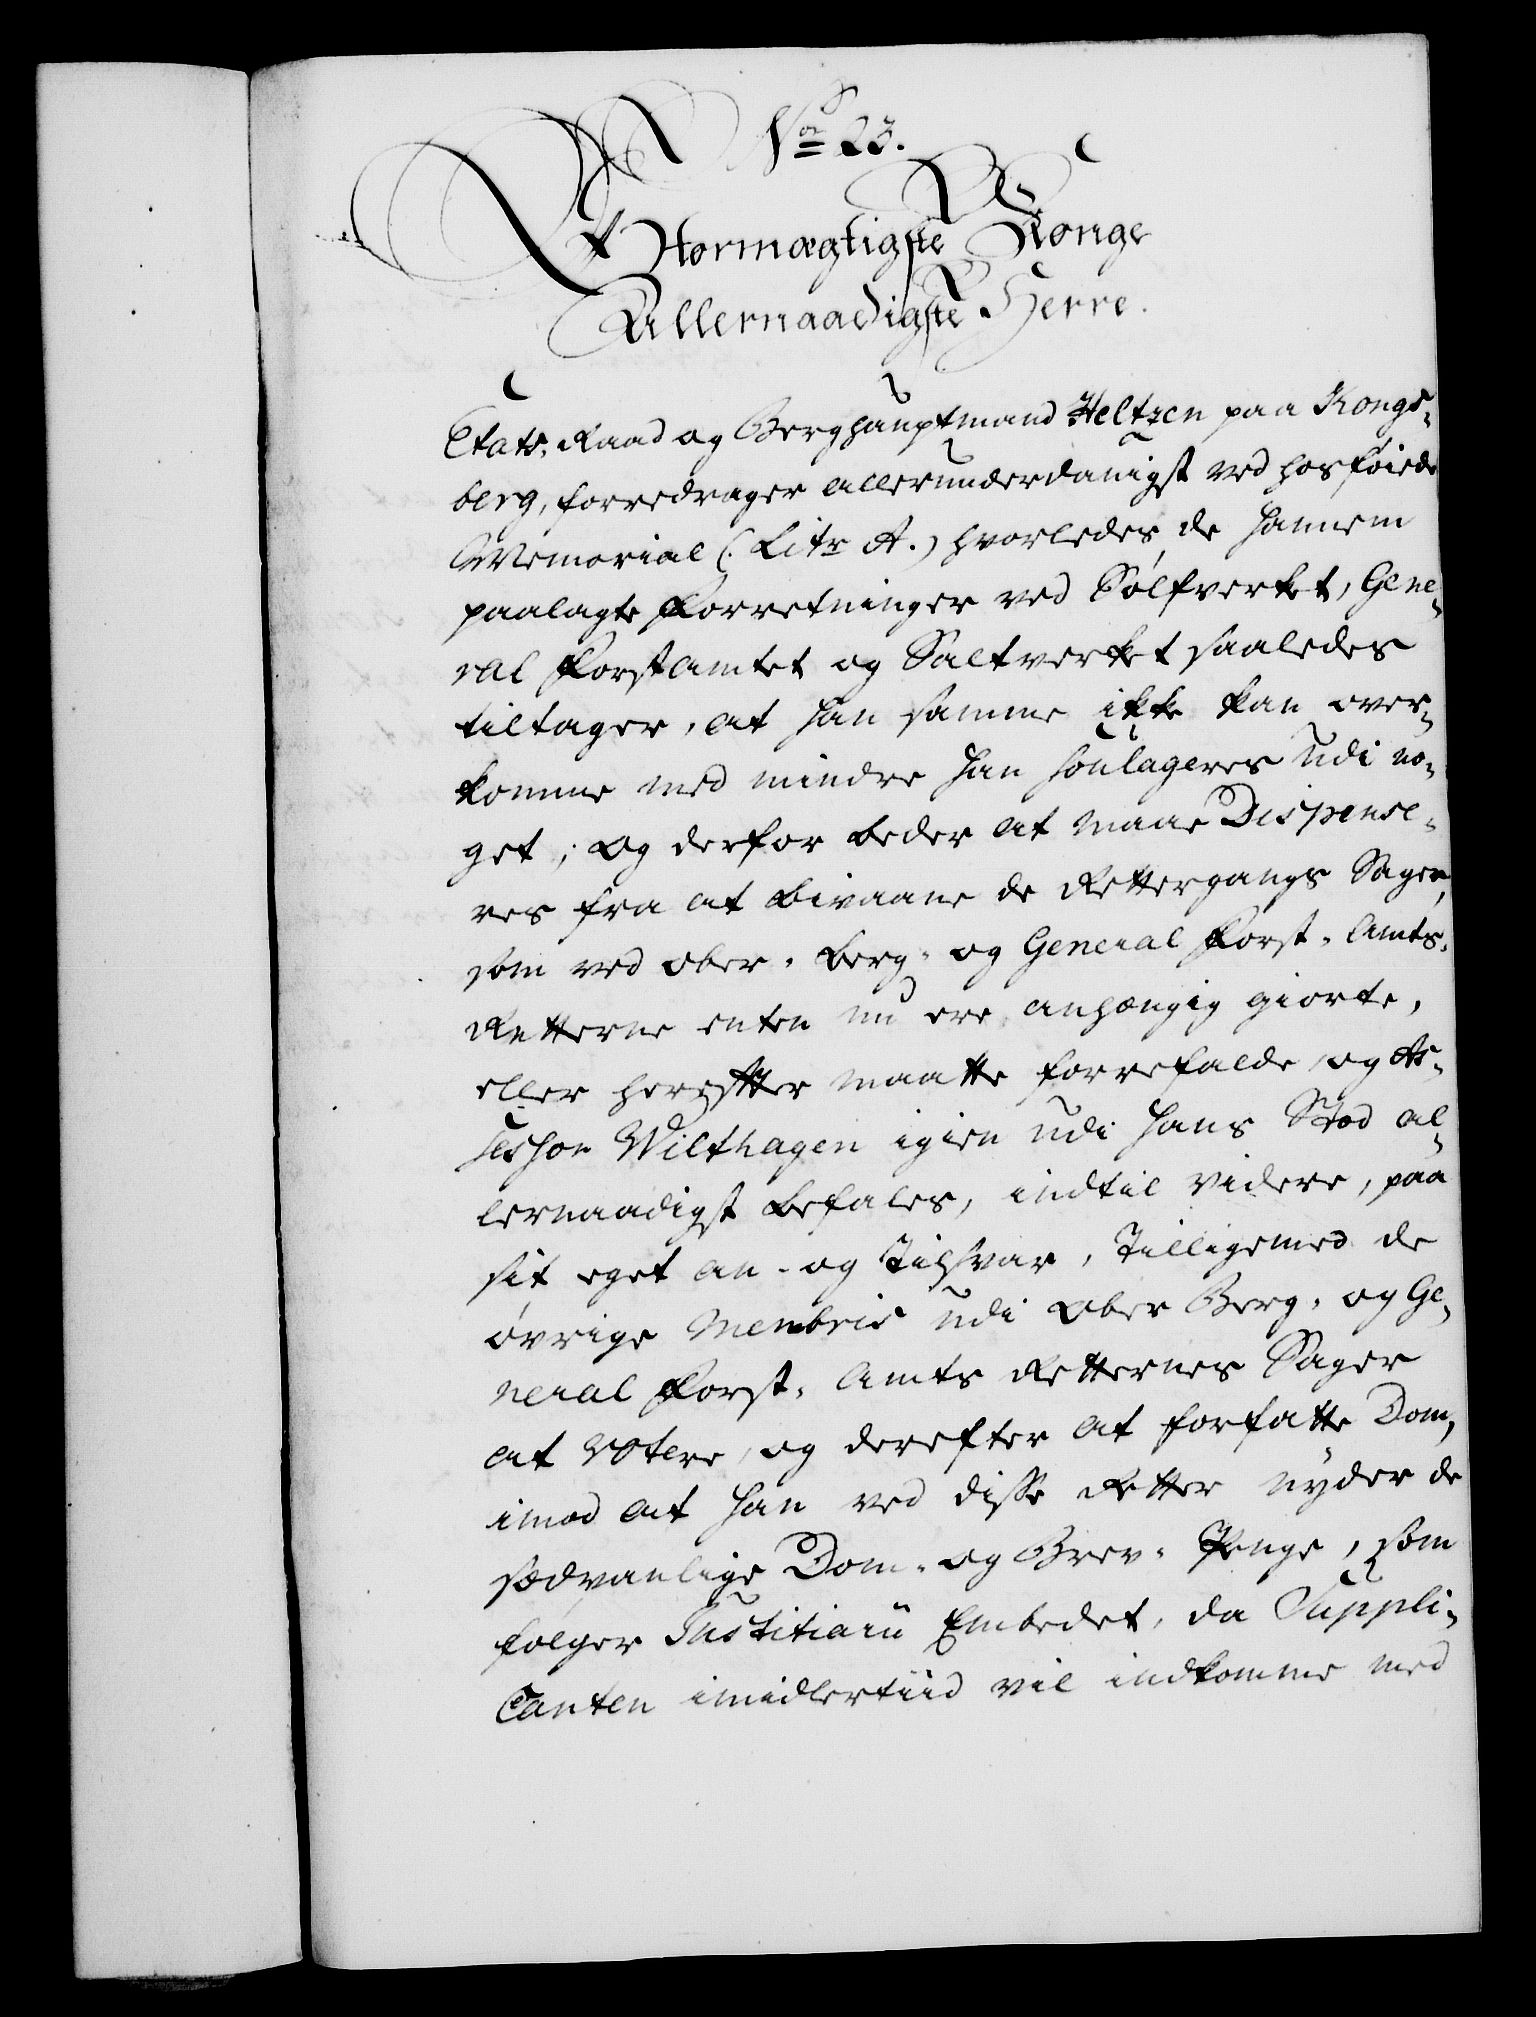 No 23.
Stormægtigste Konge
Allernaadigste Herre.
Etats-Raad og Berghauptmand Heltzen paa Kongs-
berg, forredrager allerunderdanigst ved hosføiede
Memorial (: Litr A.) hvorledes de hannem
paalagte Forretninger ved Sølfverket, Gene-
ral Forstamtet og Saltverket saaledes
tiltager, at han samme ikke kan over-
komme med mindre han soulageres udi no-
get; og derfor beder at maae Dispense-
res fra at bivaane de Rettergangs Sager,
som ved ober-berg- og General Forst-Amts-
Retterne enten nu ere anhængig giorte,
eller herefter maatte forrefalde, og As-
sessor Wilthagen igien udi hans Stæd al-
lernaadigst befales, indtil videre, paa
sit eget an- og Tilsvar, tilligemed de
øvrige Membris udi Ober Berg- og Ge-
neral Forst-Amts Retternes Sager
at votere, og derefter at forfatte Dom,
imod at han ved disse Retter nyder de
sædvanlige Dom- og Brev-Penge, som
følger Justitiarii Embedet, da Suppli-
canten imidlertiid vil indkomme med